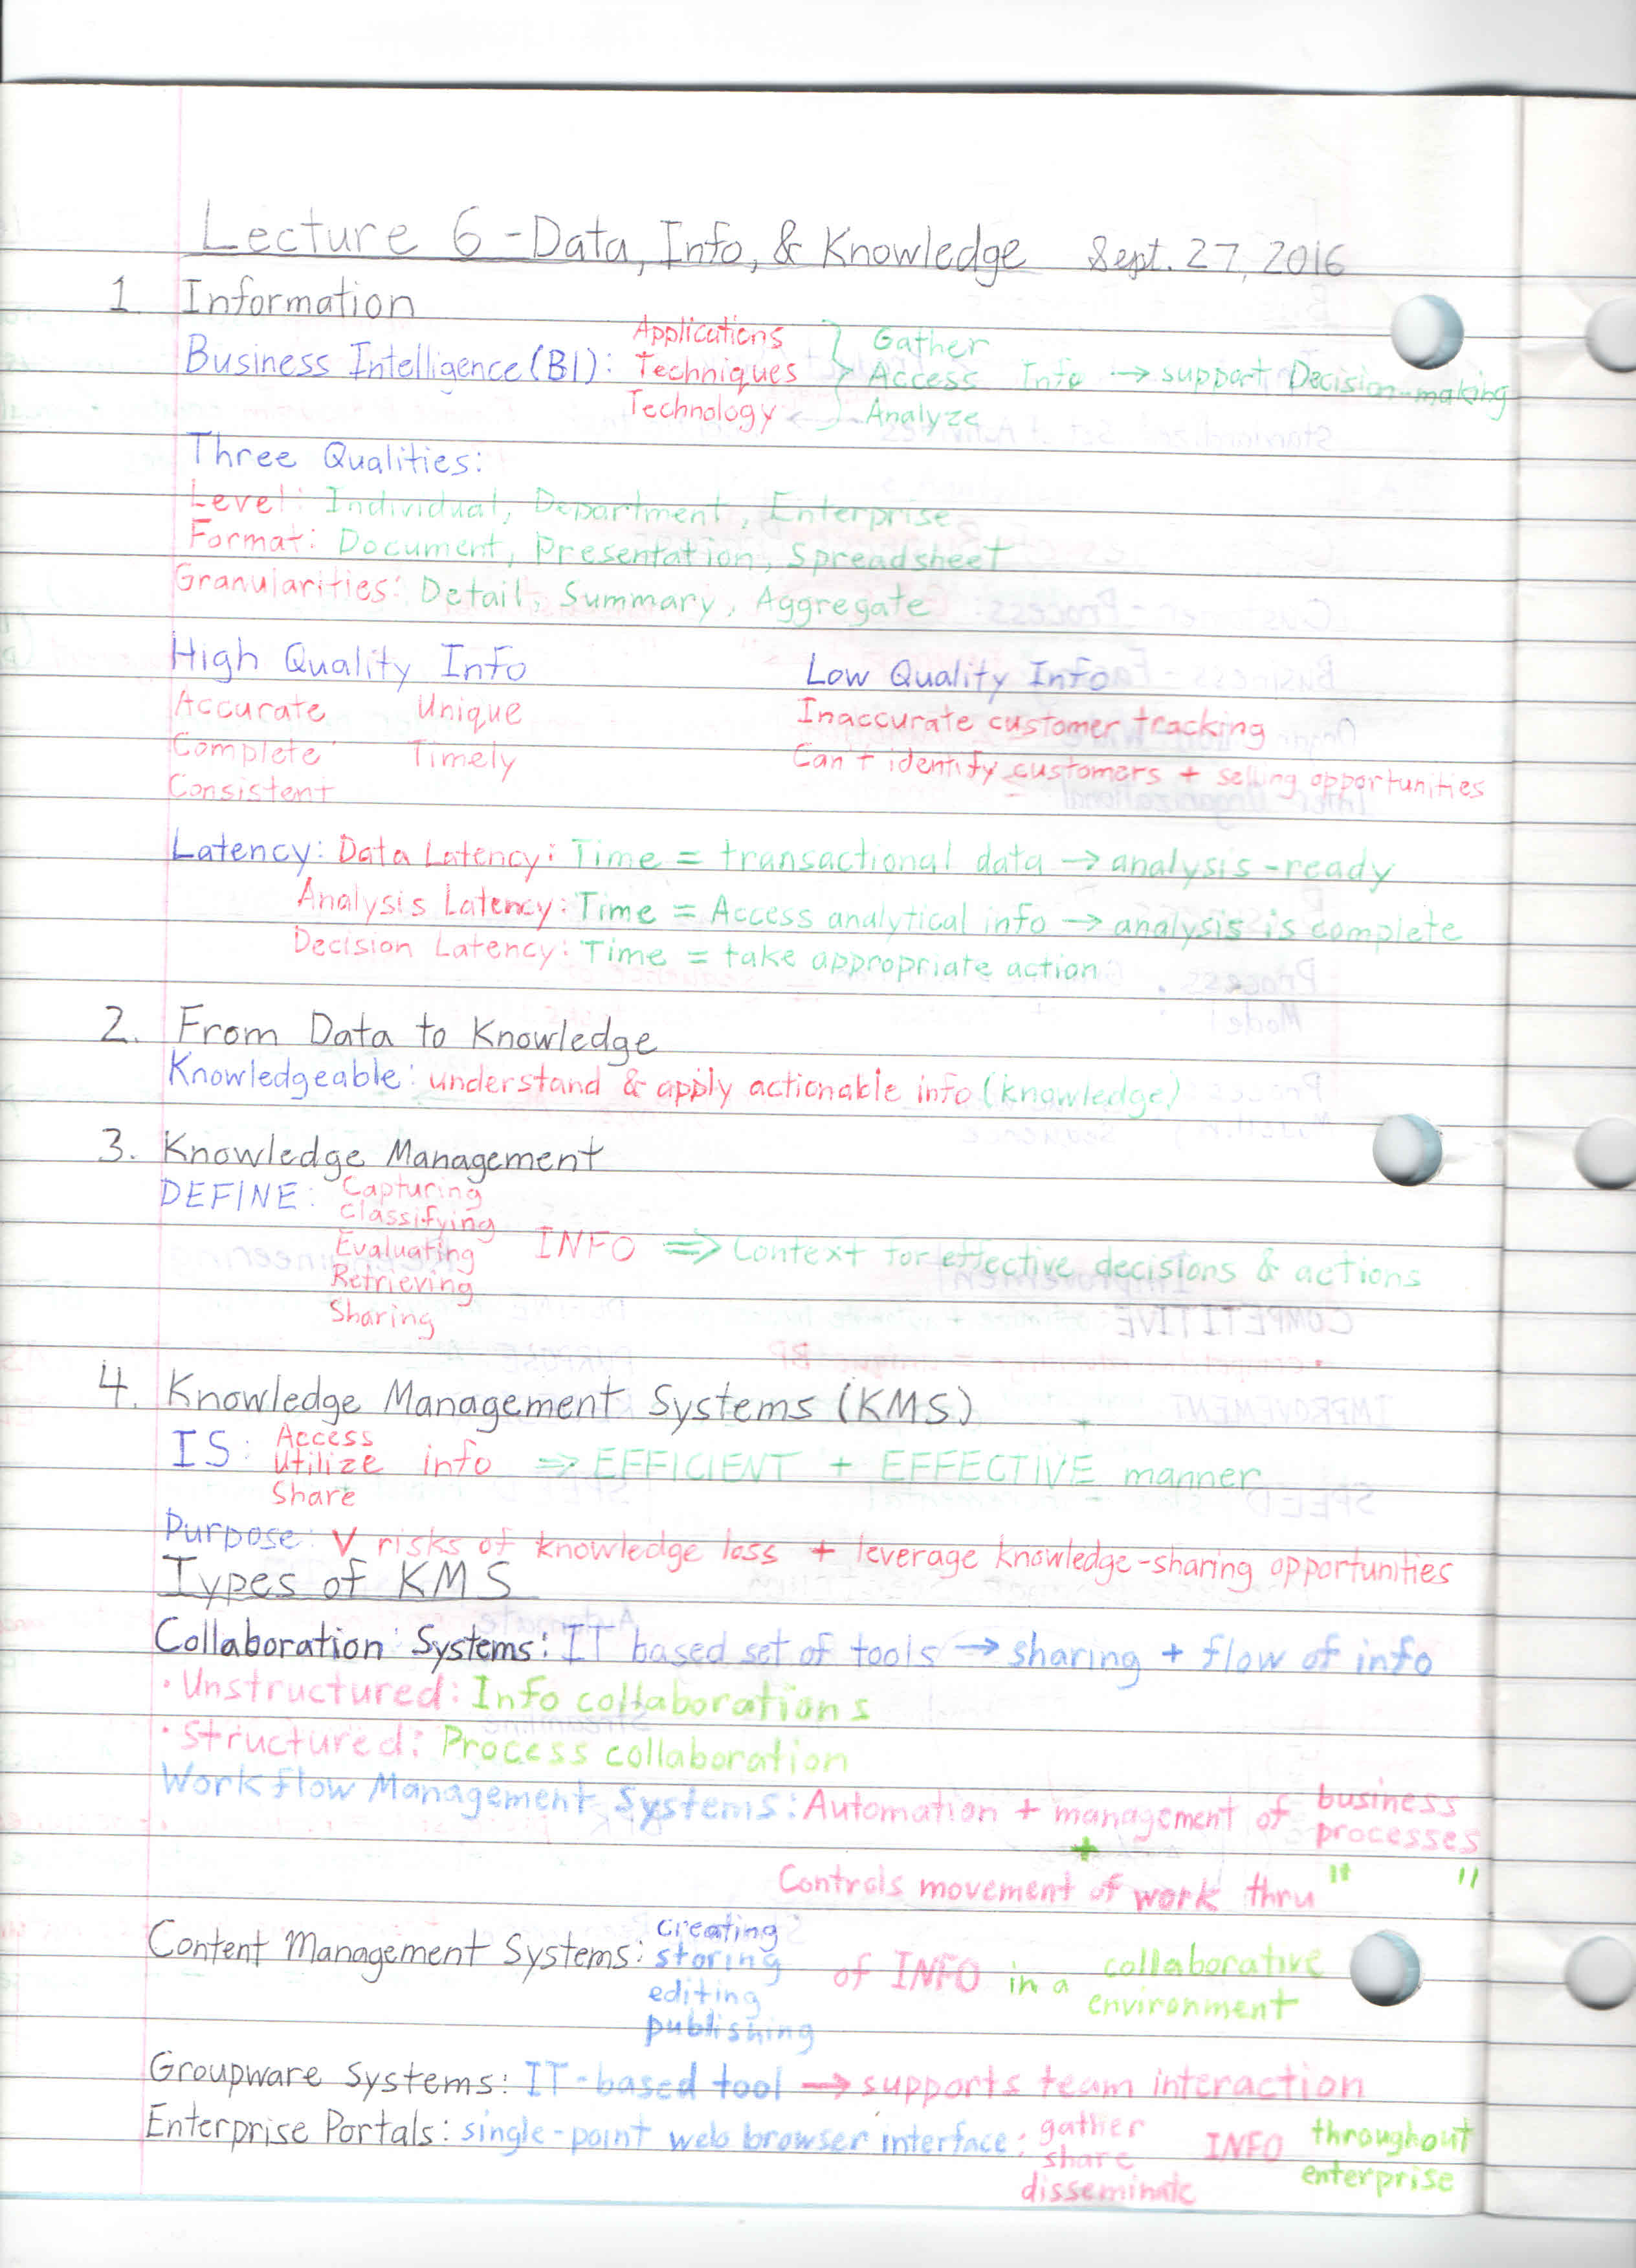 Lecture 6 - Data, Info, & Knowledge Sept. 27, 2016
1. Information
Business Intelligence (BI): Applications Techniques Technology } Gather Access Analyze Info → support Decision-making
Three Qualities:
Level: Individual, Department, Enterprise
Format: Document, Presentation, Spreadsheet
Granularities: Detail, Summary, Aggregate
High Quality Info Low Quality Info
Accurate Unique Inaccurate customer tracking
Complete Timely Can't identify customers + selling opportunities
Consistent
Latency: Data Latency: Time = transactional data → analysis-ready
Analysis Latency: Time = Access analytical info → analysis is complete
Decision Latency: Time = take appropriate action
2. From Data to Knowledge
Knowledgeable: understand & apply actionable info (knowledge)
3. Knowledge Management
DEFINE: Capturing
Classifying
Evaluating INFO ⇒ Context for effective decisions & actions
Retrieving
Sharing
4. Knowledge Management Systems (KMS)
IS: Access
Utilize info ⇒ EFFICIENT + EFFECTIVE manner
Share
Purpose: ∨ risks of knowledge loss + leverage knowledge-sharing opportunities
Types of KMS
Collaboration Systems: IT based set of tools → sharing + flow of info
• Unstructured: Info collaborations
• Structured: Process collaboration
Workflow Management Systems: Automation + management of business processes
+
Controls movement of work thru " "
Content Management Systems: creating
storing of INFO in a collaborative
editing environment
publishing
Groupware Systems: IT-based tool → supports team interaction
Enterprise Portals: single-point web browser interface: gather INFO throughout
share enterprise
disseminate